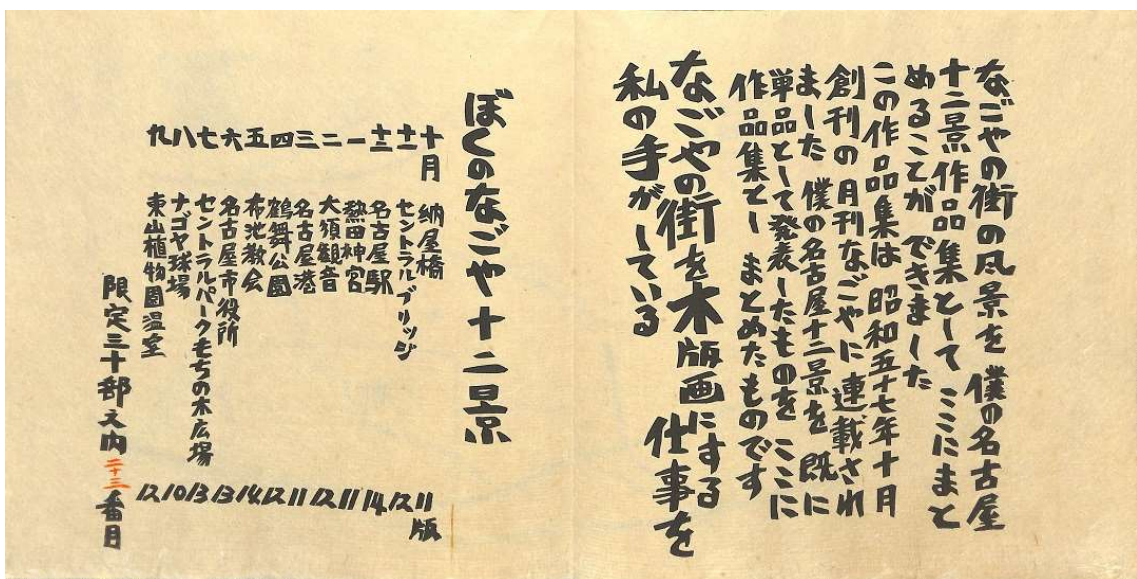 なごやの街の風景を 僕の名古屋
十二景作品集として ここにまと
めることが できました
この作品集は 昭和五十七年十月
創刊の月刊なごやに 連載され
ました 僕の名古屋十二景を 既に
単品として発表したものを ここに
作品集とし まとめたものです
なごやの街を木版画にする 仕事を
私の手がしている
ぼくのなごや十二景
十月 納屋橋 11版
十一 セントラルブリッジ 12
十二 名古屋駅 14
一 熱田神宮 11
二 大須観音 12
三 名古屋港 11
四 鶴舞公園 12
五 布池教会 14
六 名古屋市役所 13
七 セントラルパークもちの木広場 13
八 ナゴヤ球場 10
九 東山植物園温室 12
限定三十部之内二十三番目